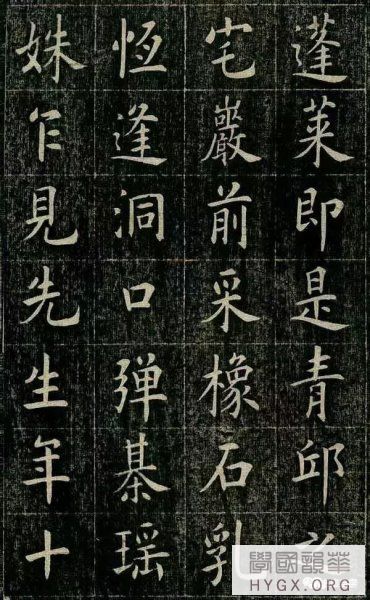 蓬莱即是青邱
宅巖前采橡石乳
恆逢洞口弹棊瑶
姝乍見先生年十
學國韻華
HYGX.ORG